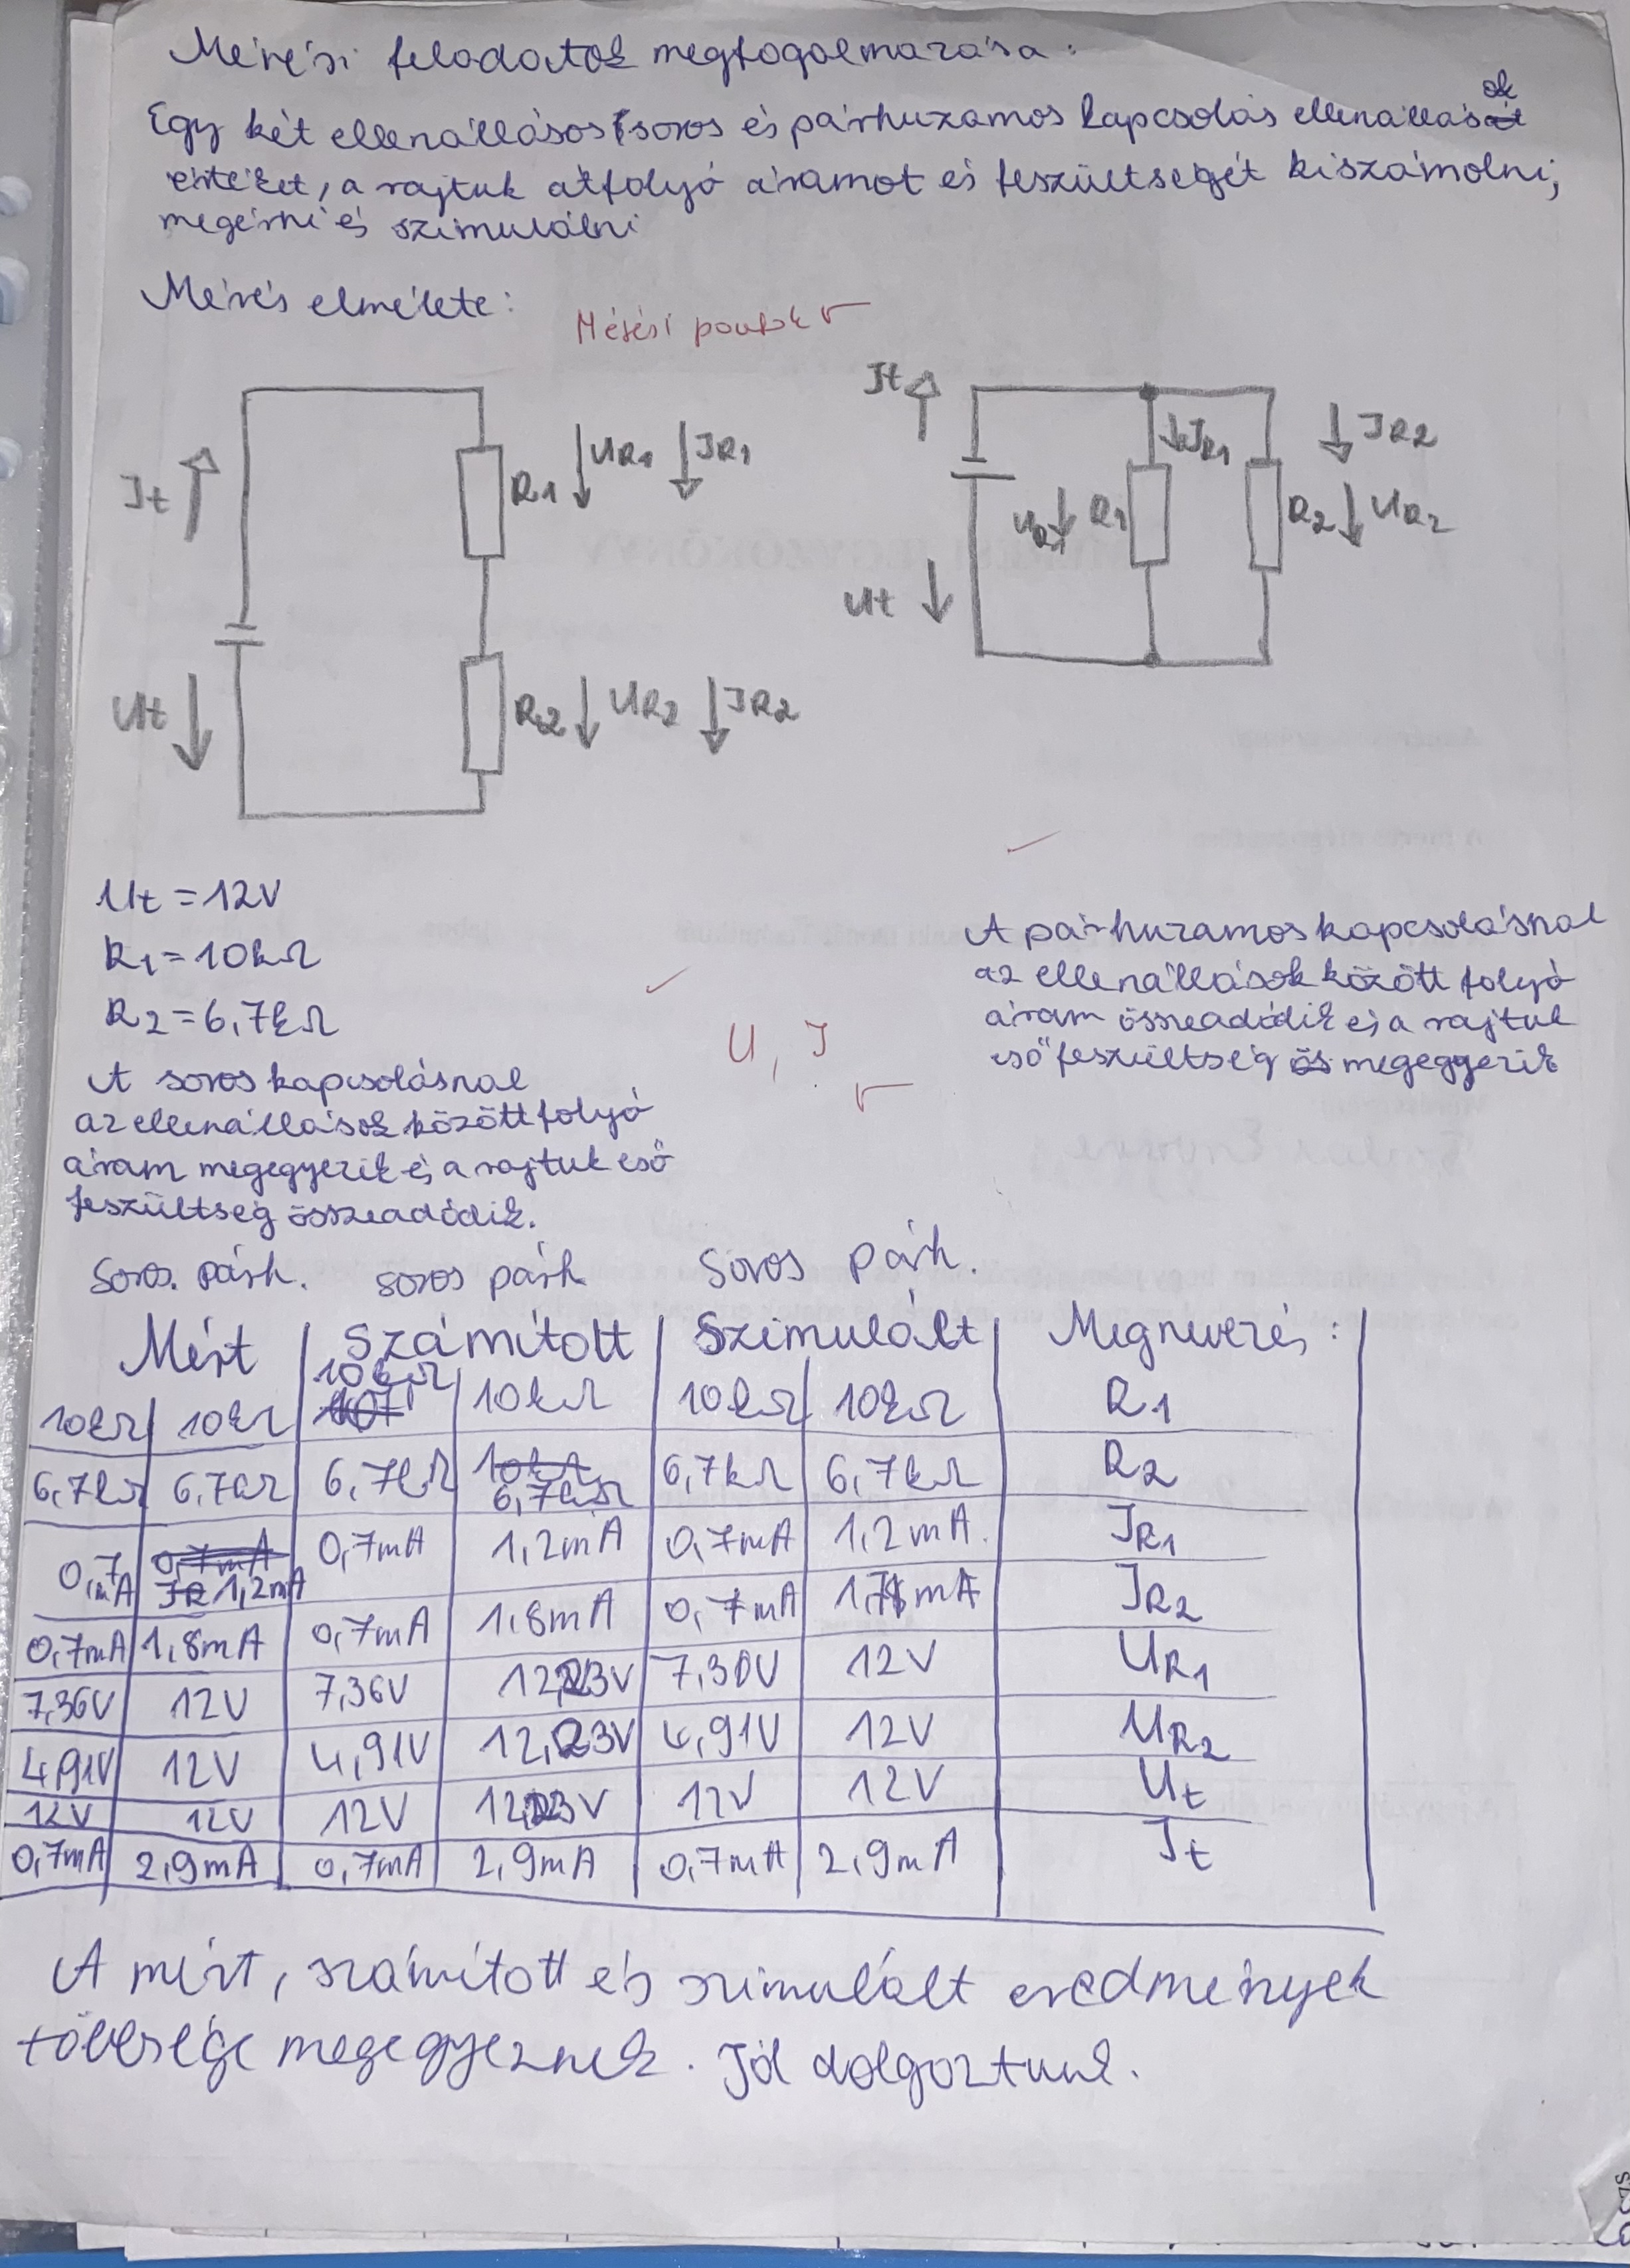 Mérési feladatok megfogalmazása:
Egy két ellenállásos soros és párhuzamos kapcsolás ellenállások
értékét, a rajtuk átfolyó áramot és feszültségét kiszámolni,
megérni és szimulálni
Mérés elmélete:
Mérési pontok
It
R1 UR1 IR1
Ut
R2 UR2 IR2
It
IR1 IR2
UR1 R1 R2 UR2
Ut
Ut = 12V
R1 = 10kΩ
R2 = 6,7kΩ
A soros kapcsolásnal
az ellenállások között folyó
áram megegyezik és a rajtuk eső
feszültség összeadódik.
U, I
A párhuzamos kapcsolásnal
az ellenállások között folyó
áram összeadódik és a rajtuk
eső feszültség megegyezik
Soros. párh. soros párh Soros Párh.
Mért Számított Szimulált Megnevezés:
10kΩ 10kΩ 10kΩ 10kΩ 10kΩ 10kΩ R1
6,7kΩ 6,7kΩ 6,7kΩ 6,7kΩ 6,7kΩ 6,7kΩ R2
0,7mA 1,2mA 0,7mA 1,2mA 0,7mA 1,2mA. IR1
0,7mA 1,8mA 0,7mA 1,8mA 0,7mA IR2
7,36V 12V 7,36V 12,23V 7,30V 12V UR1
4,91V 12V 4,91V 12,23V 4,91V 12V UR2
12V 12V 12V 12V 12V Ut
0,7mA 2,9mA 0,7mA 2,9mA 0,7mA 2,9mA It
A mért, számított és szimulált eredmények
többsége megegyeznek. Jól dolgoztunk.